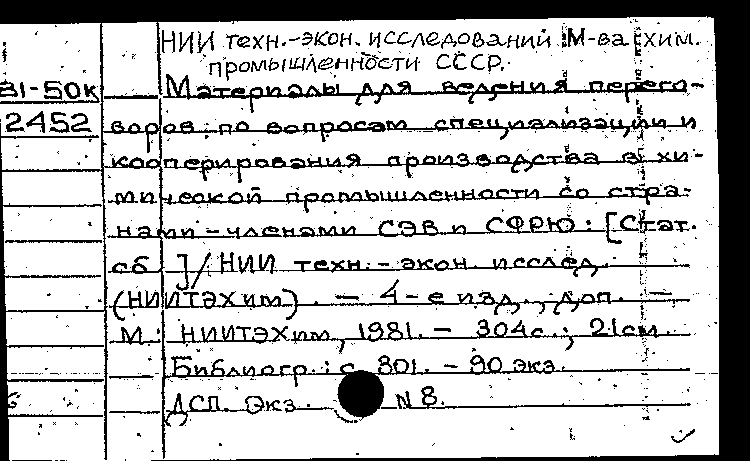 НИИ техн.-экон. исследований М-ва хим.
промышленности СССР.
81-50к
Материалы для ведения перего-
2452
воров по вопросам специализации и
кооперирования производства в хи-
мической промышленности со стра-
нами-членами СЭВ и СФРЮ: [Стат.
сб ]/ НИИ техн. - экон. исслед.
(НИИТЭХим). - 4-е изд., доп. -
М: НИИТЭХим, 1981. - 304с.; 21см.
Библиогр.: с 301. - 90 экз.
ДСП. Экз. N 8.